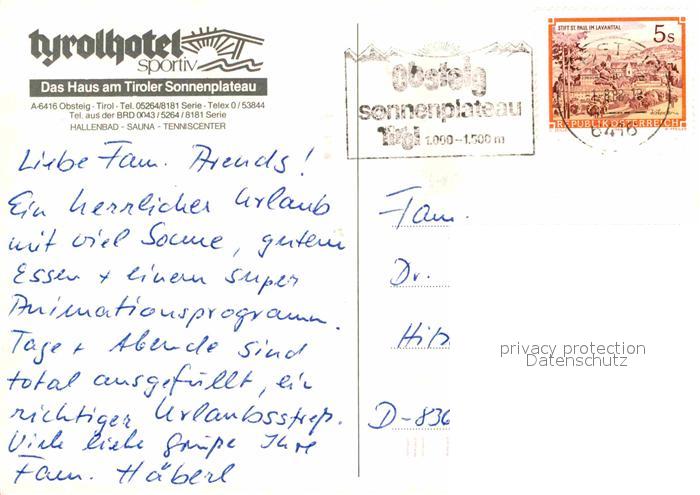 tyrolhotel
sportiv
Das Haus am Tiroler Sonnenplateau
A-6416 Obsteig - Tirol - Tel. 05264/8181 Serie - Telex 0 / 53844
Tel. aus der BRD 0043 / 5264 / 8181 Serie
HALLENBAD - SAUNA - TENNISCENTER
Obsteig
sonnenplateau
Tirol 1.000-1.500 m
STIFT ST. PAUL IM LAVANTTAL
5s
REPUBLIK ÖSTERREICH
6416
Liebe Fam. Arends!
Ein herrlicher Urlaub
mit viel Sonne, gutem
Essen + einem super
Animationsprogramm.
Tage + Abende sind
total ausgefüllt, ein
richtiger Urlaubsstreß.
Viele liebe Grüße Ihre
Fam. Häberl
Fam.
Dr.
D-836
privacy protection
Datenschutz